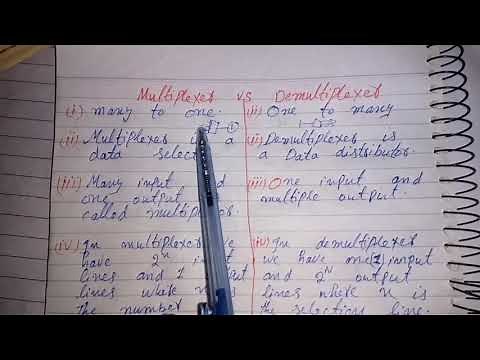 Multiplexer vs Demultiplexer
(i) Many to one. (ii) One to many
(ii) Multiplexer is a (ii) Demultiplexer is
data selec a Data distributor.
(iii) Many input and (iii) One input and
one output multiple output.
called multiplexor.
(iv) In multiplexer we (iv) In demultiplexer
have 2ⁿ input we have one(1) input
lines and 1 output and 2ᴺ output
lines where n is lines where n is
the number the selection line.